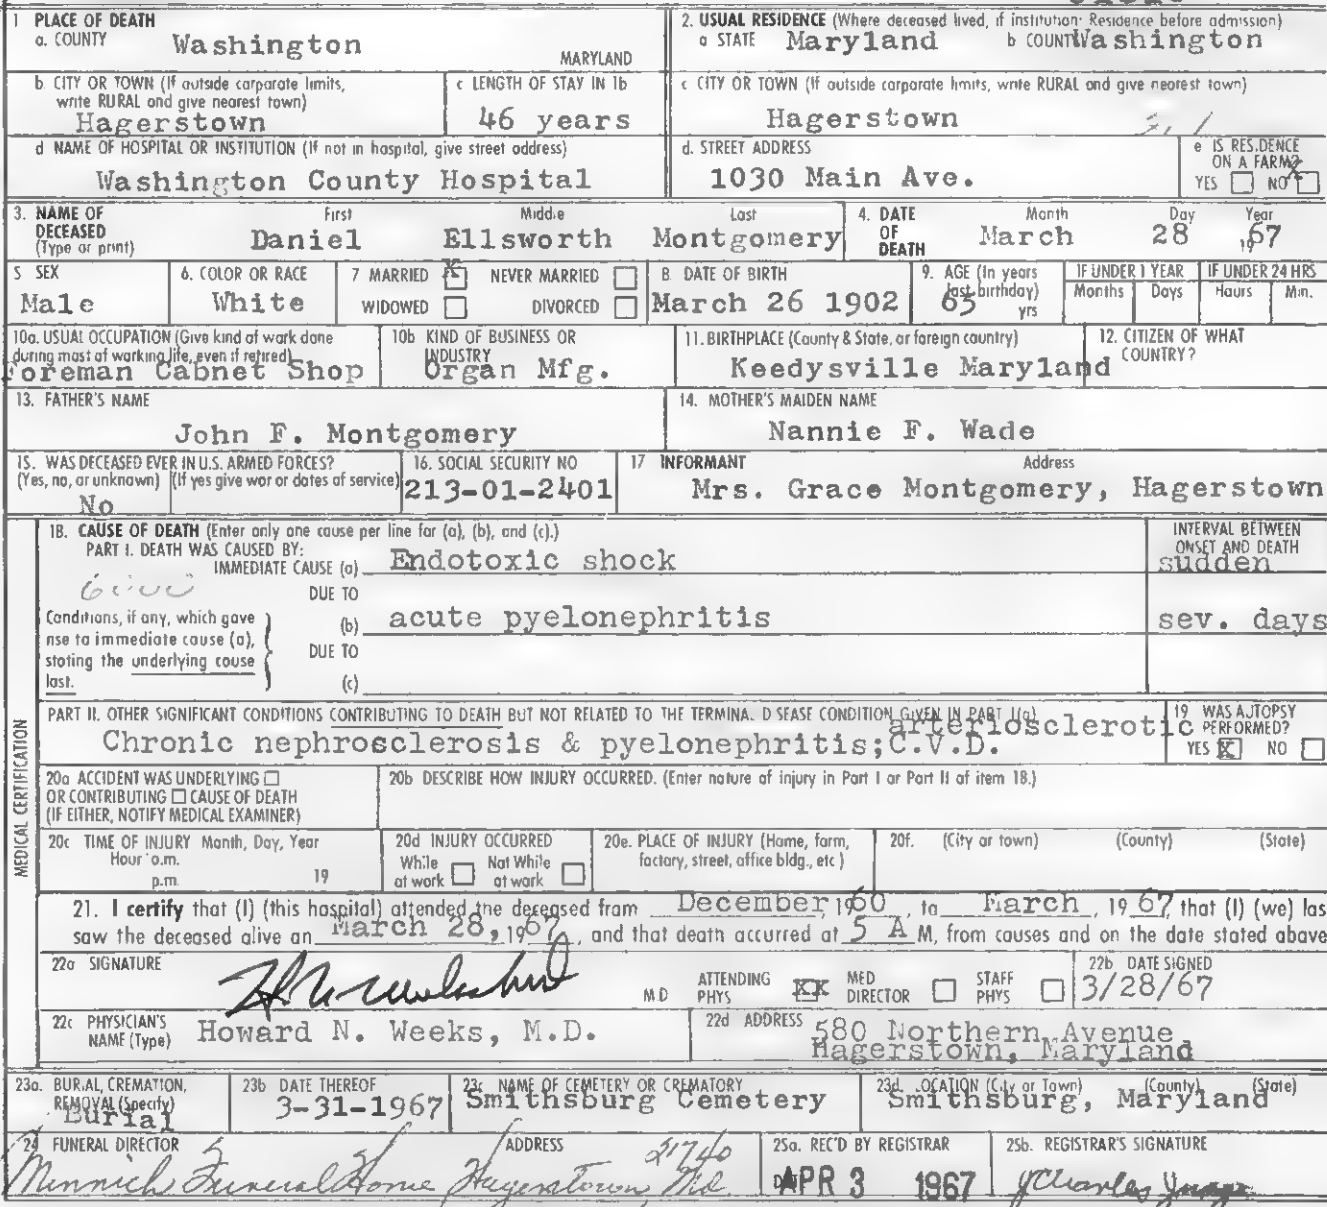 1 PLACE OF DEATH
a. COUNTY Washington MARYLAND
2. USUAL RESIDENCE (Where deceased lived, if institution: Residence before admission)
a STATE Maryland b COUNTY Washington
b. CITY OR TOWN (If outside corporate limits, write RURAL and give nearest town)
Hagerstown
c LENGTH OF STAY IN 1b
46 years
c CITY OR TOWN (If outside corporate limits, write RURAL and give nearest town)
Hagerstown
d NAME OF HOSPITAL OR INSTITUTION (If not in hospital, give street address)
Washington County Hospital
d. STREET ADDRESS
1030 Main Ave.
e IS RESIDENCE ON A FARM?
YES NO X
3. NAME OF DECEASED (Type or print)
First Middle Last
Daniel Ellsworth Montgomery
4. DATE OF DEATH
Month Day Year
March 28 1967
5 SEX
Male
6. COLOR OR RACE
White
7 MARRIED X NEVER MARRIED
WIDOWED DIVORCED
8 DATE OF BIRTH
March 26 1902
9. AGE (In years last birthday)
65 yrs
IF UNDER 1 YEAR
Months Days
IF UNDER 24 HRS
Hours Min.
10a. USUAL OCCUPATION (Give kind of work done during most of working life, even if retired)
Foreman Cabnet Shop
10b KIND OF BUSINESS OR INDUSTRY
Organ Mfg.
11. BIRTHPLACE (County & State, or foreign country)
Keedysville Maryland
12. CITIZEN OF WHAT COUNTRY?
13. FATHER'S NAME
John F. Montgomery
14. MOTHER'S MAIDEN NAME
Nannie F. Wade
15. WAS DECEASED EVER IN U.S. ARMED FORCES?
(Yes, no, or unknown) (If yes give war or dates of service)
No
16. SOCIAL SECURITY NO
213-01-2401
17 INFORMANT Address
Mrs. Grace Montgomery, Hagerstown
MEDICAL CERTIFICATION
18. CAUSE OF DEATH (Enter only one cause per line for (a), (b), and (c).)
PART I. DEATH WAS CAUSED BY:
IMMEDIATE CAUSE (a) Endotoxic shock
INTERVAL BETWEEN ONSET AND DEATH
sudden
DUE TO
Conditions, if any, which gave rise to immediate cause (a), stating the underlying cause last.
(b) acute pyelonephritis sev. days
DUE TO
(c)
PART II. OTHER SIGNIFICANT CONDITIONS CONTRIBUTING TO DEATH BUT NOT RELATED TO THE TERMINAL DISEASE CONDITION GIVEN IN PART I(a)
Chronic nephrosclerosis & pyelonephritis; arteriosclerotic C.V.D.
19 WAS AUTOPSY PERFORMED?
YES X NO
20a ACCIDENT WAS UNDERLYING
OR CONTRIBUTING CAUSE OF DEATH
(IF EITHER, NOTIFY MEDICAL EXAMINER)
20b DESCRIBE HOW INJURY OCCURRED. (Enter nature of injury in Part I or Part II of item 18.)
20c TIME OF INJURY Month, Day, Year
Hour a.m.
p.m. 19
20d INJURY OCCURRED
While at work Not While at work
20e. PLACE OF INJURY (Home, farm, factory, street, office bldg., etc)
20f. (City or town) (County) (State)
21. I certify that (I) (this hospital) attended the deceased from December, 1960, to March, 1967, that (I) (we) las
saw the deceased alive on March 28, 1967, and that death occurred at 5 A M, from causes and on the date stated above
22a SIGNATURE
M D
ATTENDING PHYS XX MED DIRECTOR STAFF PHYS
22b DATE SIGNED
3/28/67
22c PHYSICIAN'S NAME (Type) Howard N. Weeks, M.D.
22d ADDRESS 580 Northern Avenue
Hagerstown, Maryland
23a. BURIAL, CREMATION, REMOVAL (Specify)
Burial
23b DATE THEREOF
3-31-1967
23c NAME OF CEMETERY OR CREMATORY
Smithsburg Cemetery
23d LOCATION (City or Town) (County) (State)
Smithsburg, Maryland
24 FUNERAL DIRECTOR ADDRESS
Minnich Funeral Home Hagerstown, Md. 21740
25a. REC'D BY REGISTRAR
APR 3 1967
25b. REGISTRAR'S SIGNATURE